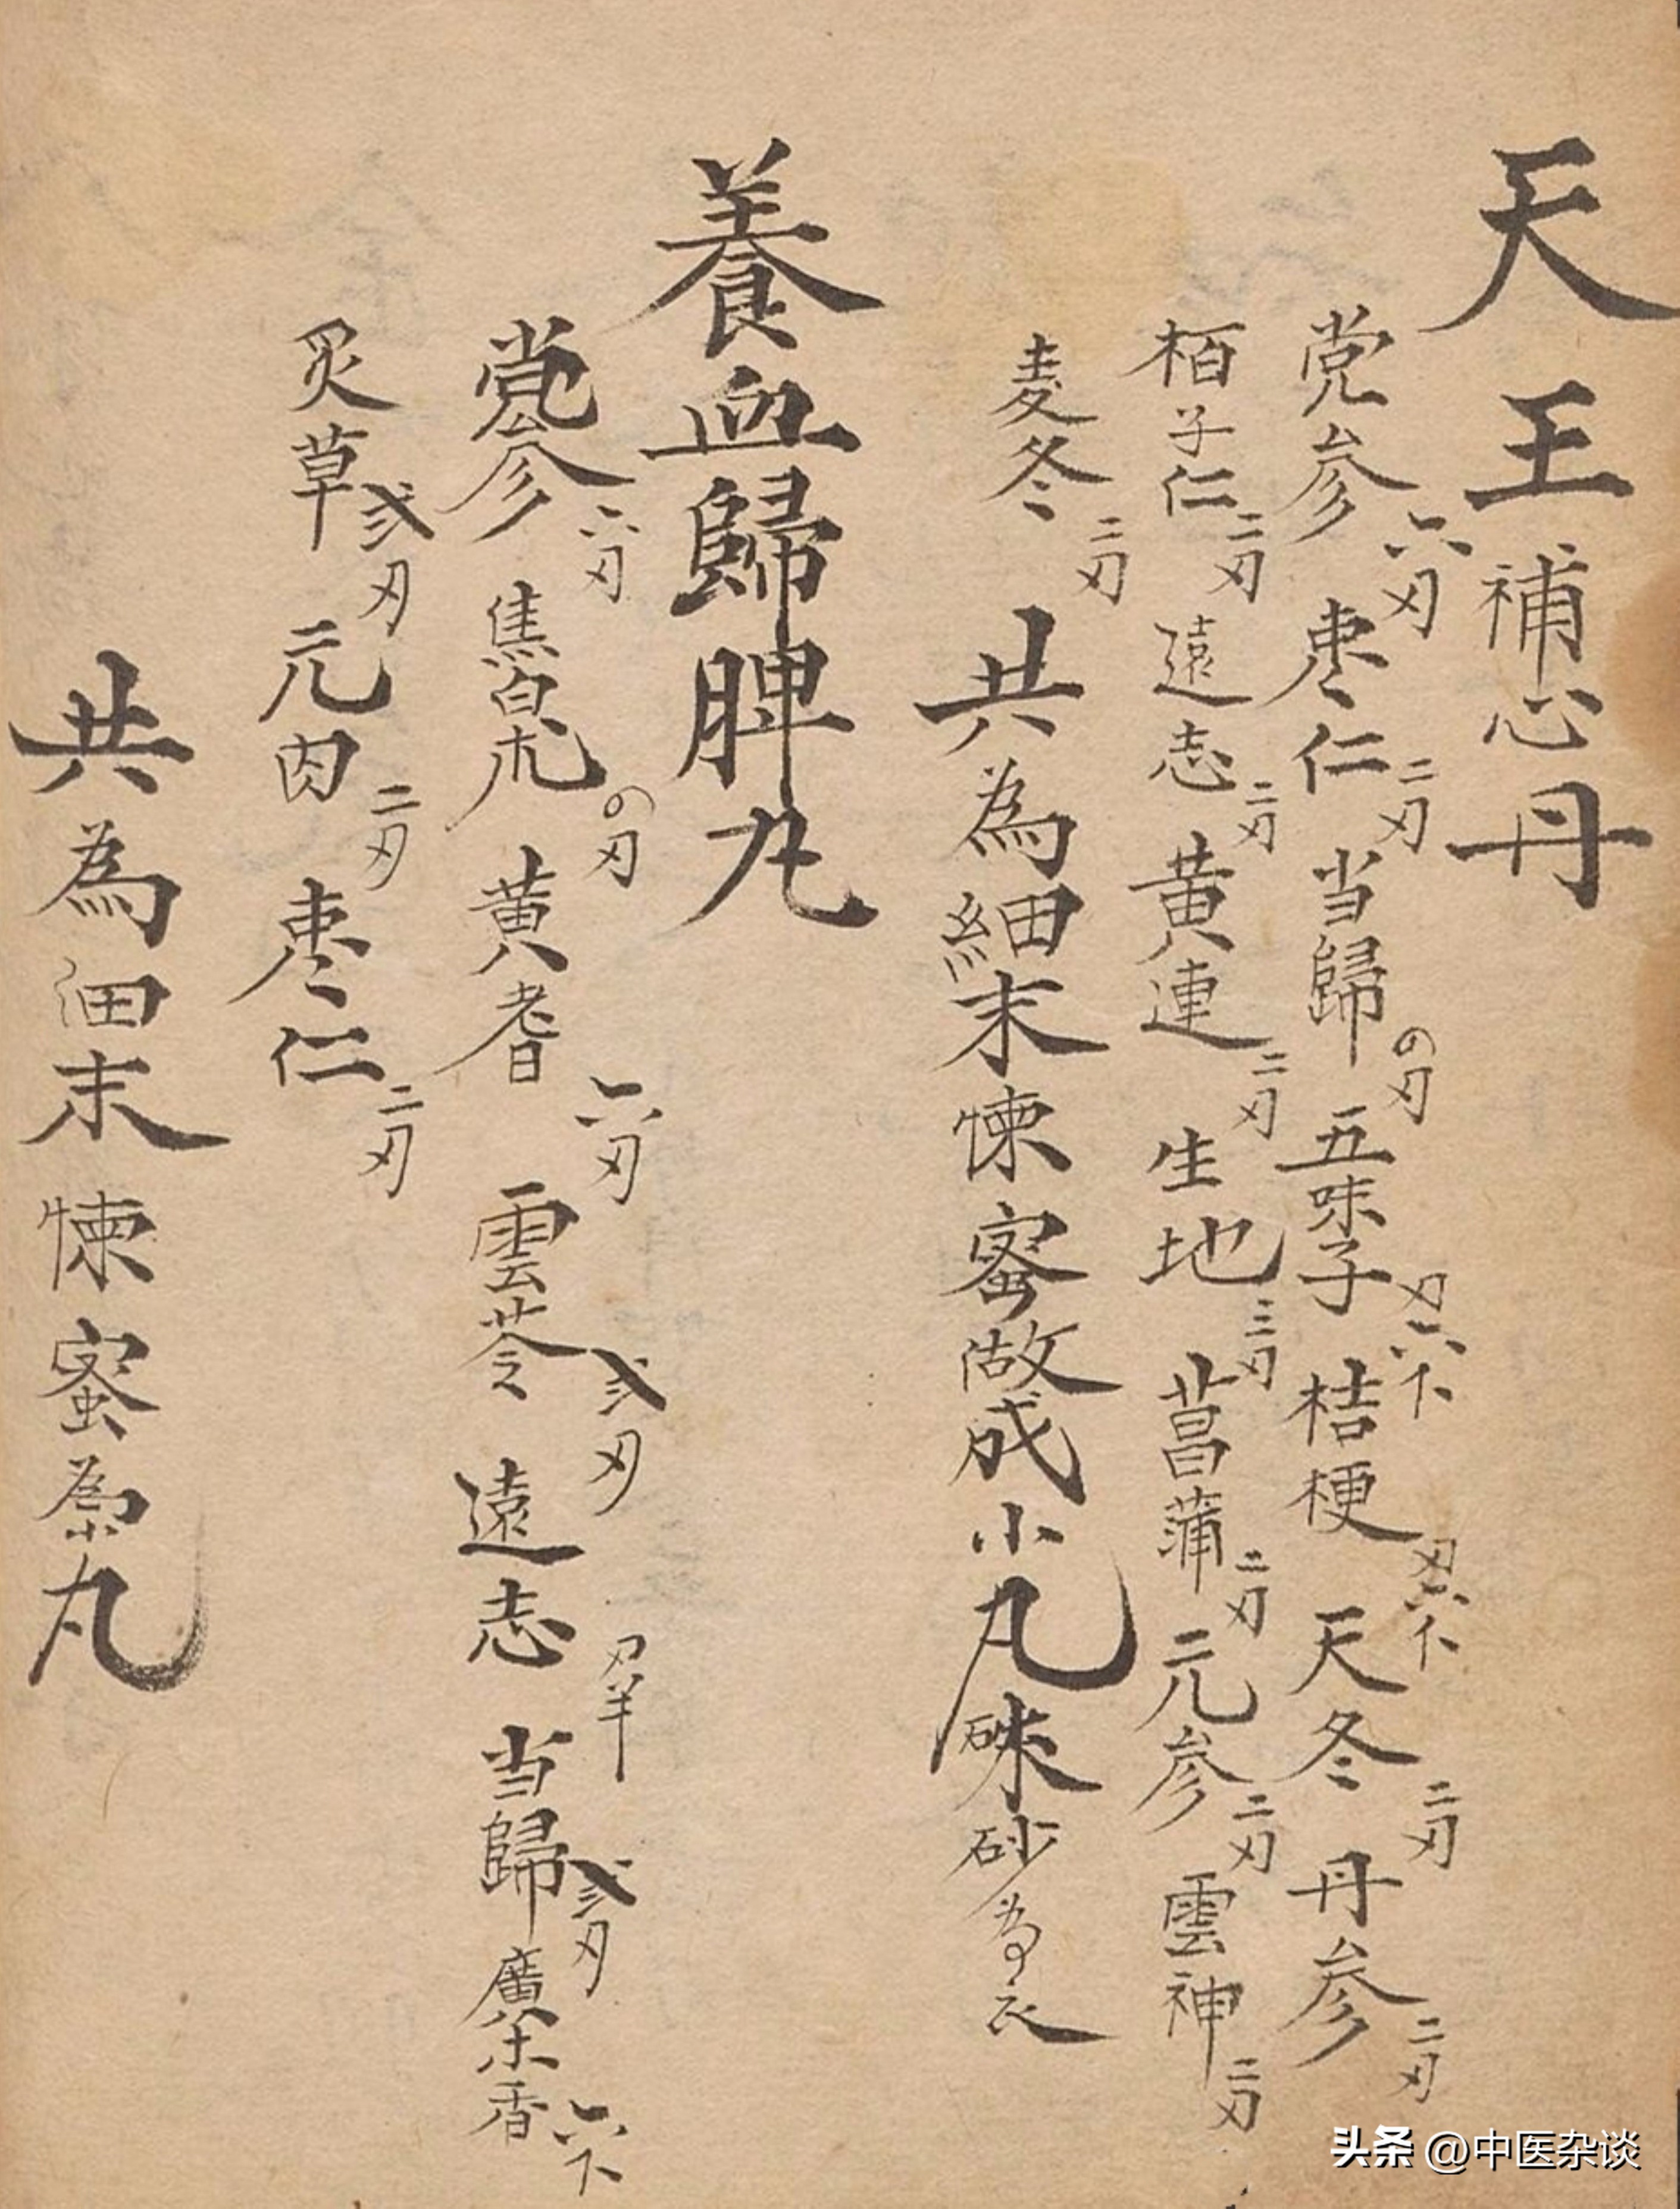 天王補心丹
党参六刄 枣仁二刄 当歸の刄 五味子刄六卜 桔梗刄六卜 天冬二刄 丹参二刄
栢子仁二刄 遠志二刄 黄連二刄 生地三刄 菖蒲二刄 元参二刄 雲神二刄
麦冬二刄 共為細末煉蜜做成小丸硃砂為衣
養血歸脾丸
党参六刄 焦白朮の刄 黄耆六刄 雲苓弍刄 遠志刄半 当歸弍刄 廣木香六卜
炙草弍刄 元肉二刄 枣仁二刄
共為細末煉蜜為丸
头条 @中医杂谈